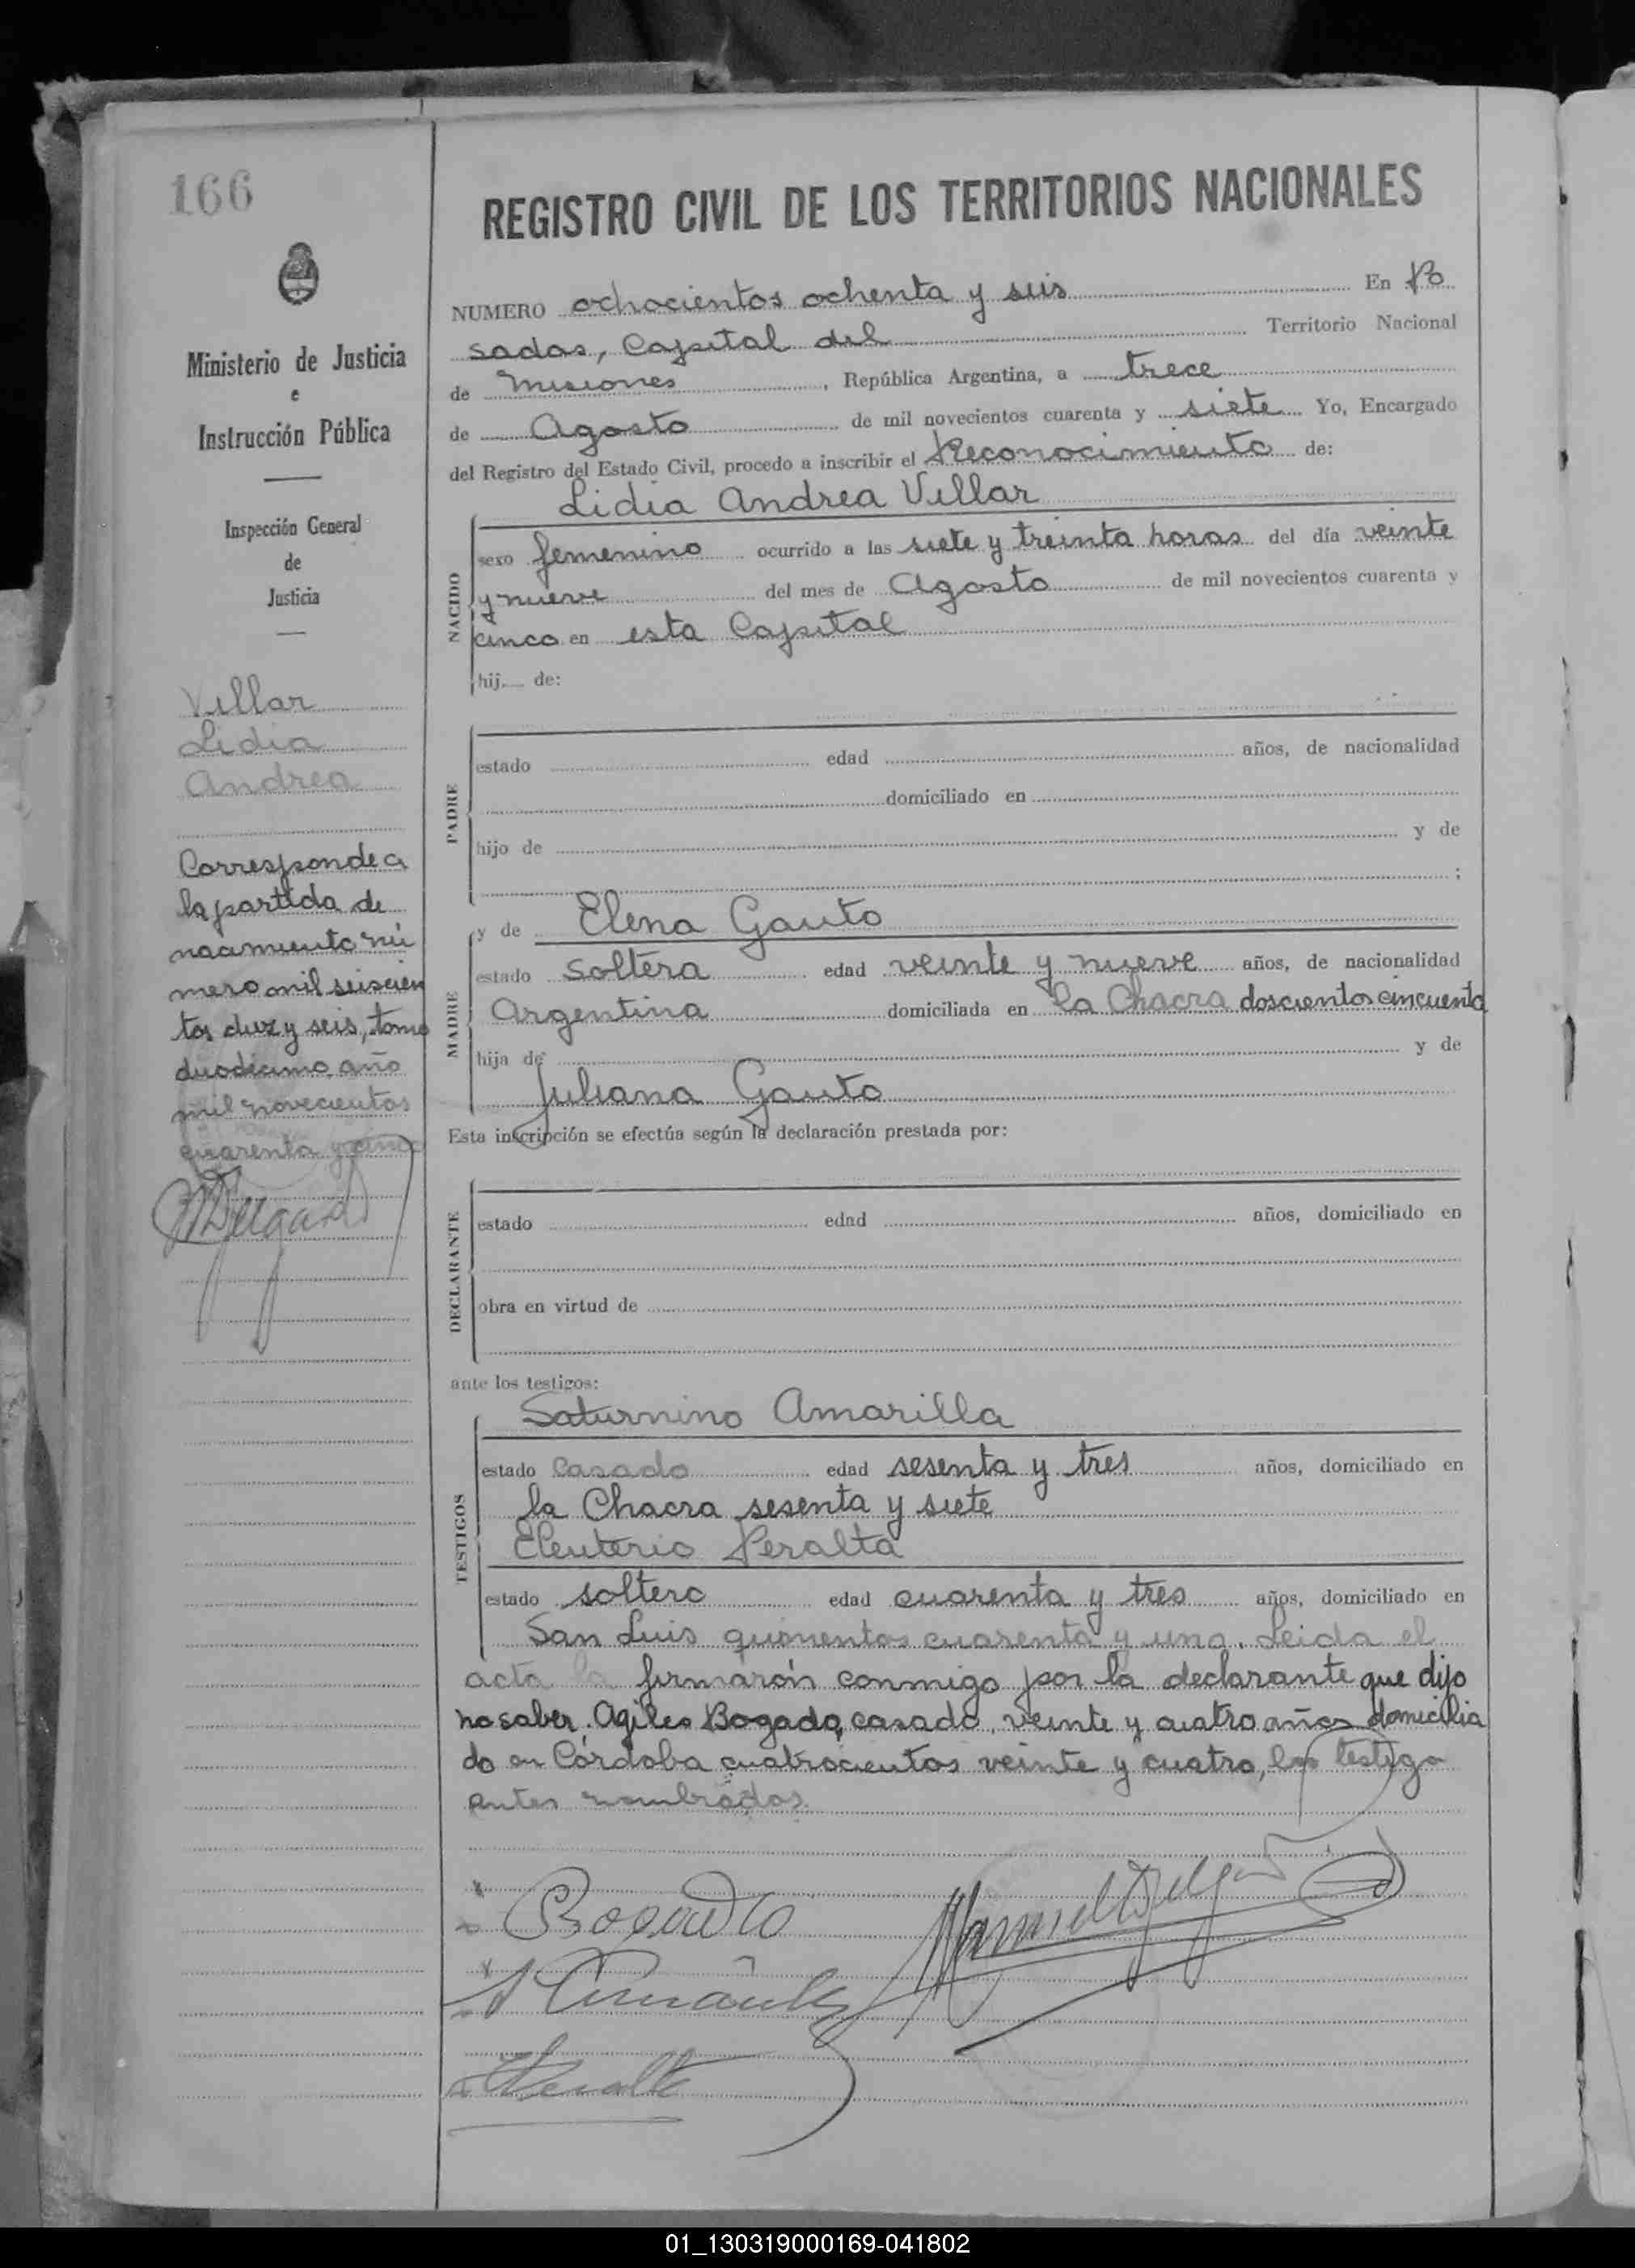 166
Ministerio de Justicia
e
Instrucción Pública
Inspección General
de
Justicia
Villar
Lidia
Andrea
Corresponde a
la partida de
nacimiento nú
mero mil seiscien
tos diez y seis, tomo
duodécimo año
mil novecientos
cuarenta y cinco
REGISTRO CIVIL DE LOS TERRITORIOS NACIONALES
NUMERO ochocientos ochenta y seis En Po
sadas, Capital del Territorio Nacional
de Misiones, República Argentina, a trece
de Agosto de mil novecientos cuarenta y siete Yo, Encargado
del Registro del Estado Civil, procedo a inscribir el Reconocimiento de:
Lidia Andrea Villar
NACIDO
sexo femenino ocurrido a las siete y treinta horas del día veinte
y nueve del mes de Agosto de mil novecientos cuarenta y
cinco en esta Capital
hij de:
PADRE
estado edad años, de nacionalidad
domiciliado en
hijo de y de
;
y de Elena Gauto
MADRE
estado soltera edad veinte y nueve años, de nacionalidad
Argentina domiciliada en la Chacra doscientos cincuenta
hija de y de
Juliana Gauto
Esta inscripción se efectúa según la declaración prestada por:
DECLARANTE
estado edad años, domiciliado en
obra en virtud de
ante los testigos:
Saturnino Amarilla
TESTIGOS
estado casado edad sesenta y tres años, domiciliado en
la Chacra sesenta y siete
Eleuterio Peralta
estado soltero edad cuarenta y tres años, domiciliado en
San Luis quinientos cuarenta y uno. Leida el
acta la firmarón conmigo por la declarante que dijo
no saber. Agileo Bogado, casado, veinte y cuatro años domicilia
do en Córdoba cuatrocientos veinte y cuatro, los testigo
antes nombrados.
Bogado
Manuel Delgado
Peralta
01_130319000169-041802